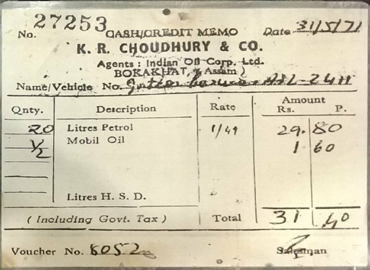 27253
CASH/CREDIT MEMO
No. Date 31/5/71
K. R. CHOUDHURY & CO.
Agents : Indian Oil Corp. Ltd.
BOKAKHAT, (Assam)
Name/Vehicle No.
Qnty. Description Rate Amount
Rs. P.
20 Litres Petrol 1/49 29. 80
½ Mobil Oil 1 60
Litres H. S. D.
( Including Govt. Tax ) Total 31 40
Voucher No. 6052 Salesman